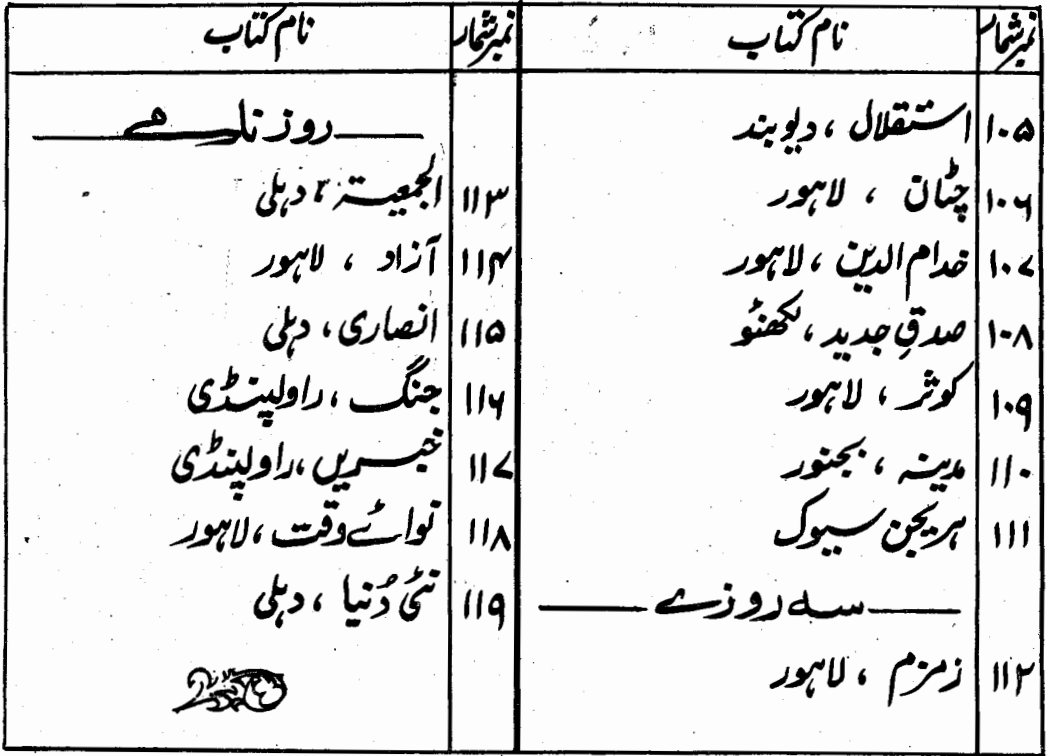 نمبر شمار نام کتاب
۱۰۵ استقلال ، دیوبند
۱۰۶ چٹان ، لاہور
۱۰۷ خدام الدین ، لاہور
۱۰۸ صدقِ جدید ، لکھنٔو
۱۰۹ کوثر ، لاہور
۱۱۰ مدینہ ، بجنور
۱۱۱ ہریجن سیوک
سہ روزے
۱۱۲ زمزم ، لاہور
نمبر شمار نام کتاب
روزنامے
۱۱۳ الجمعیتہ ، دہلی
۱۱۴ آزاد ، لاہور
۱۱۵ انصاری ، دہلی
۱۱۶ جنگ ، راولپنڈی
۱۱۷ خبریں ، راولپنڈی
۱۱۸ نوائے وقت ، لاہور
۱۱۹ نئی دُنیا ، دہلی